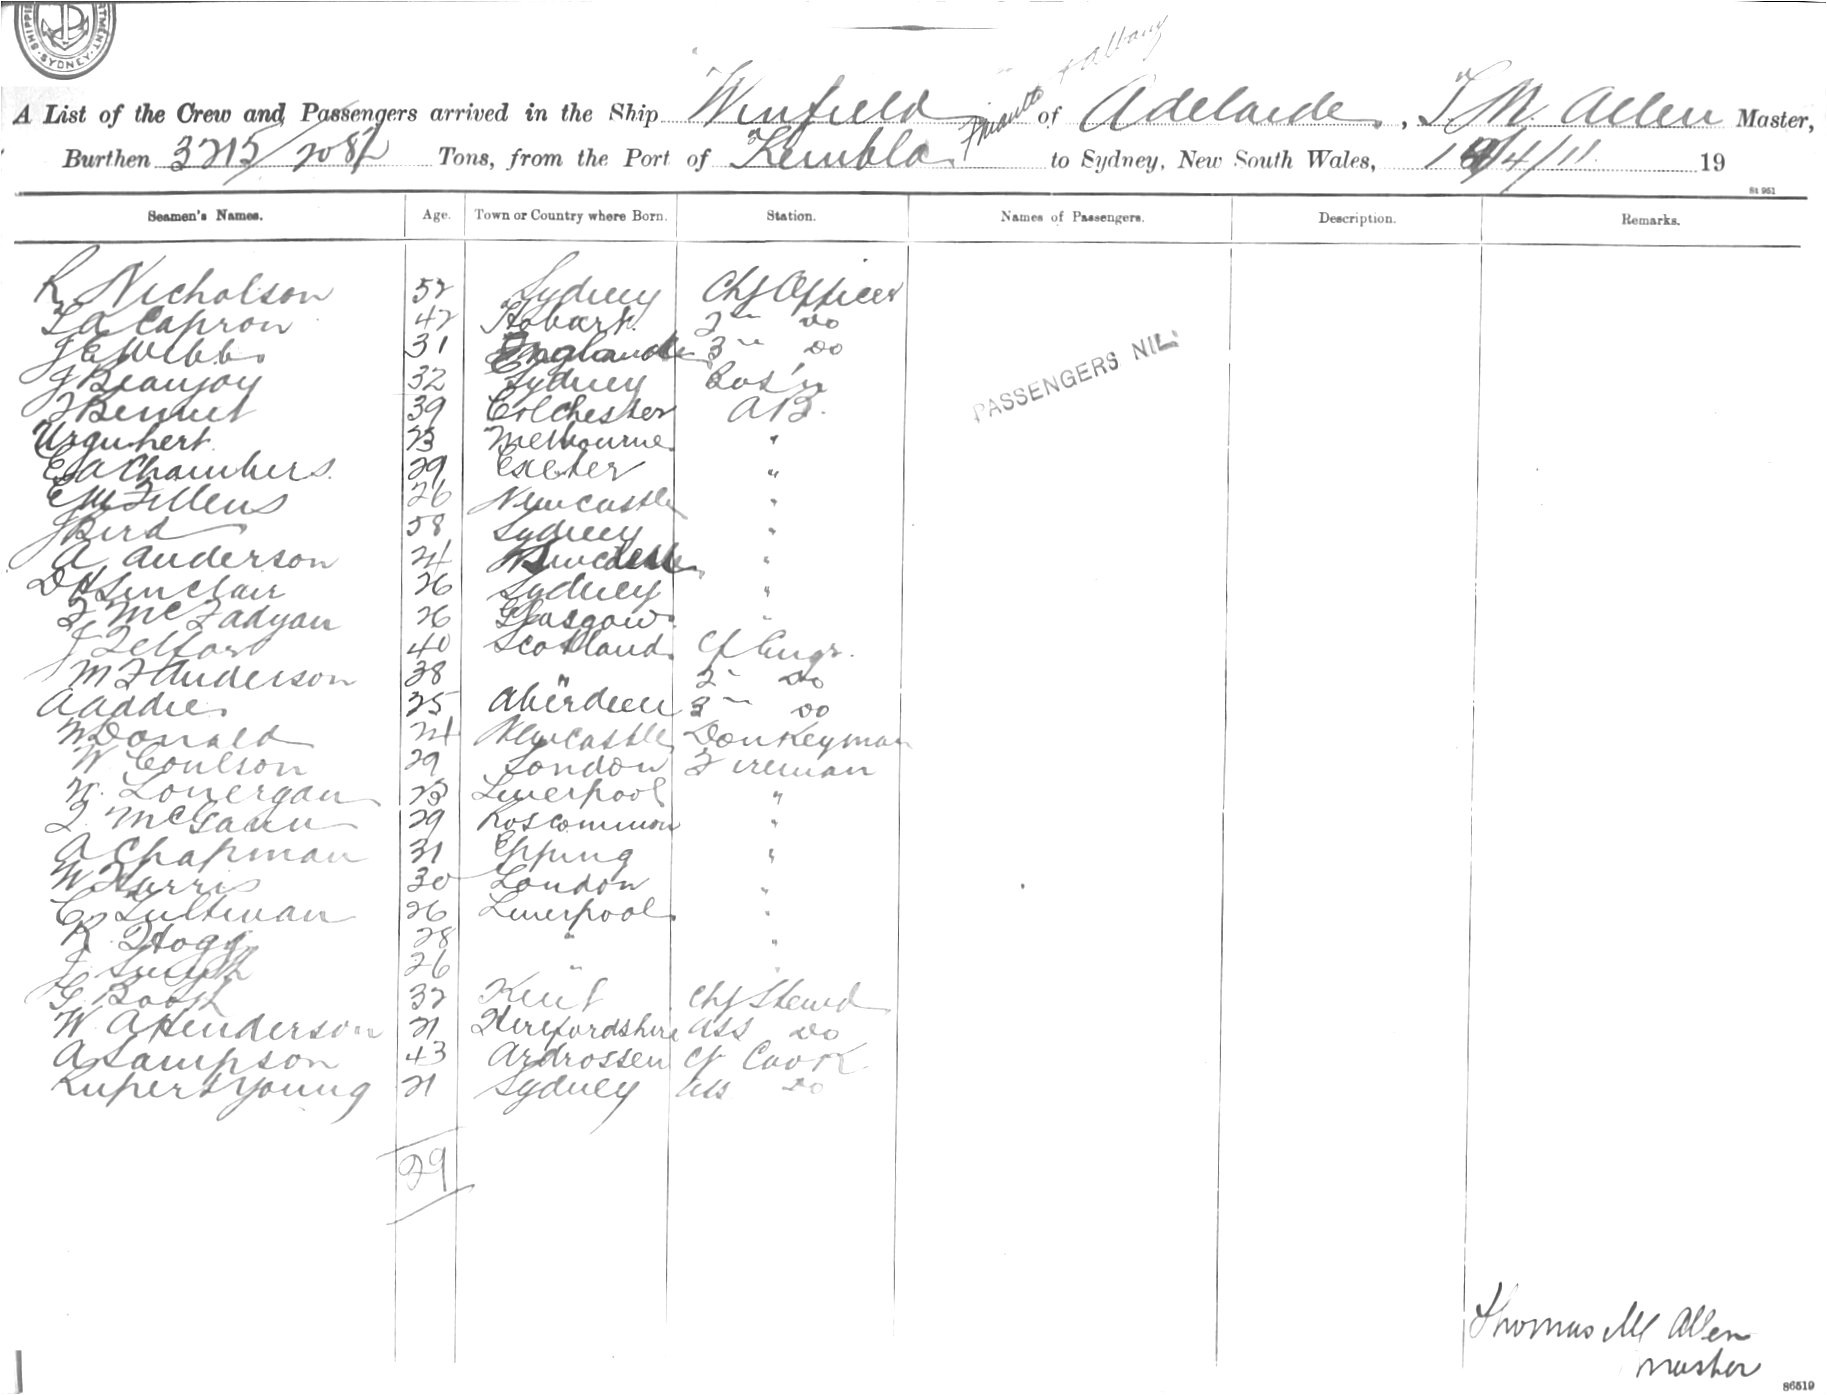 SHIPPI RTMENT
SYDNEY
& Albany
A List of the Crew and Passengers arrived in the Ship Winfield of Adelaide, T. M. Allen Master,
Burthen 3215/2084 Tons, from the Port of Kembla to Sydney, New South Wales, 4/11 19
84 951
Seamen's Names. Age. Town or Country where Born. Station. Names of Passengers. Description. Remarks.
R Nicholson 52 Sydney Chf Officer
Capron 42 Hobart 2nd Do
J E Webb 31 England 3rd Do
J Beaujoy 32 Sydney Bos'n
Bennet 39 Colchester A.B.
PASSENGERS NIL
Urquhert 23 Melbourne "
E A Chambers. 29 Exeter "
26 Newcastle "
J Bird 58 Sydney "
A Anderson 24 Newcastle "
D H Sinclair 26 Sydney "
F McFadyan 26 Glasgow "
J Telfor 40 Scotland Cf Engr.
M F Anderson 38 " 2nd Do
A Addie 25 Aberdeen 3rd Do
W Donald 24 Newcastle Donkeyman
W Coulson 29 London Fireman
W. Lonergan 23 Liverpool "
F. McGann 29 Roscommon "
A Chapman 31 Epping "
W Harris 30 London "
C. 26 Liverpool "
R Hogg 28 " "
J Smith 26 " "
G. Booth 32 Kent Chf Stewd
W A Henderson 21 Herefordshire Ass Do
A Sampson 43 Ardrossen Cf Cook
Rupert Young 21 Sydney Ass Do
29
Thomas M Allen
Master
86519